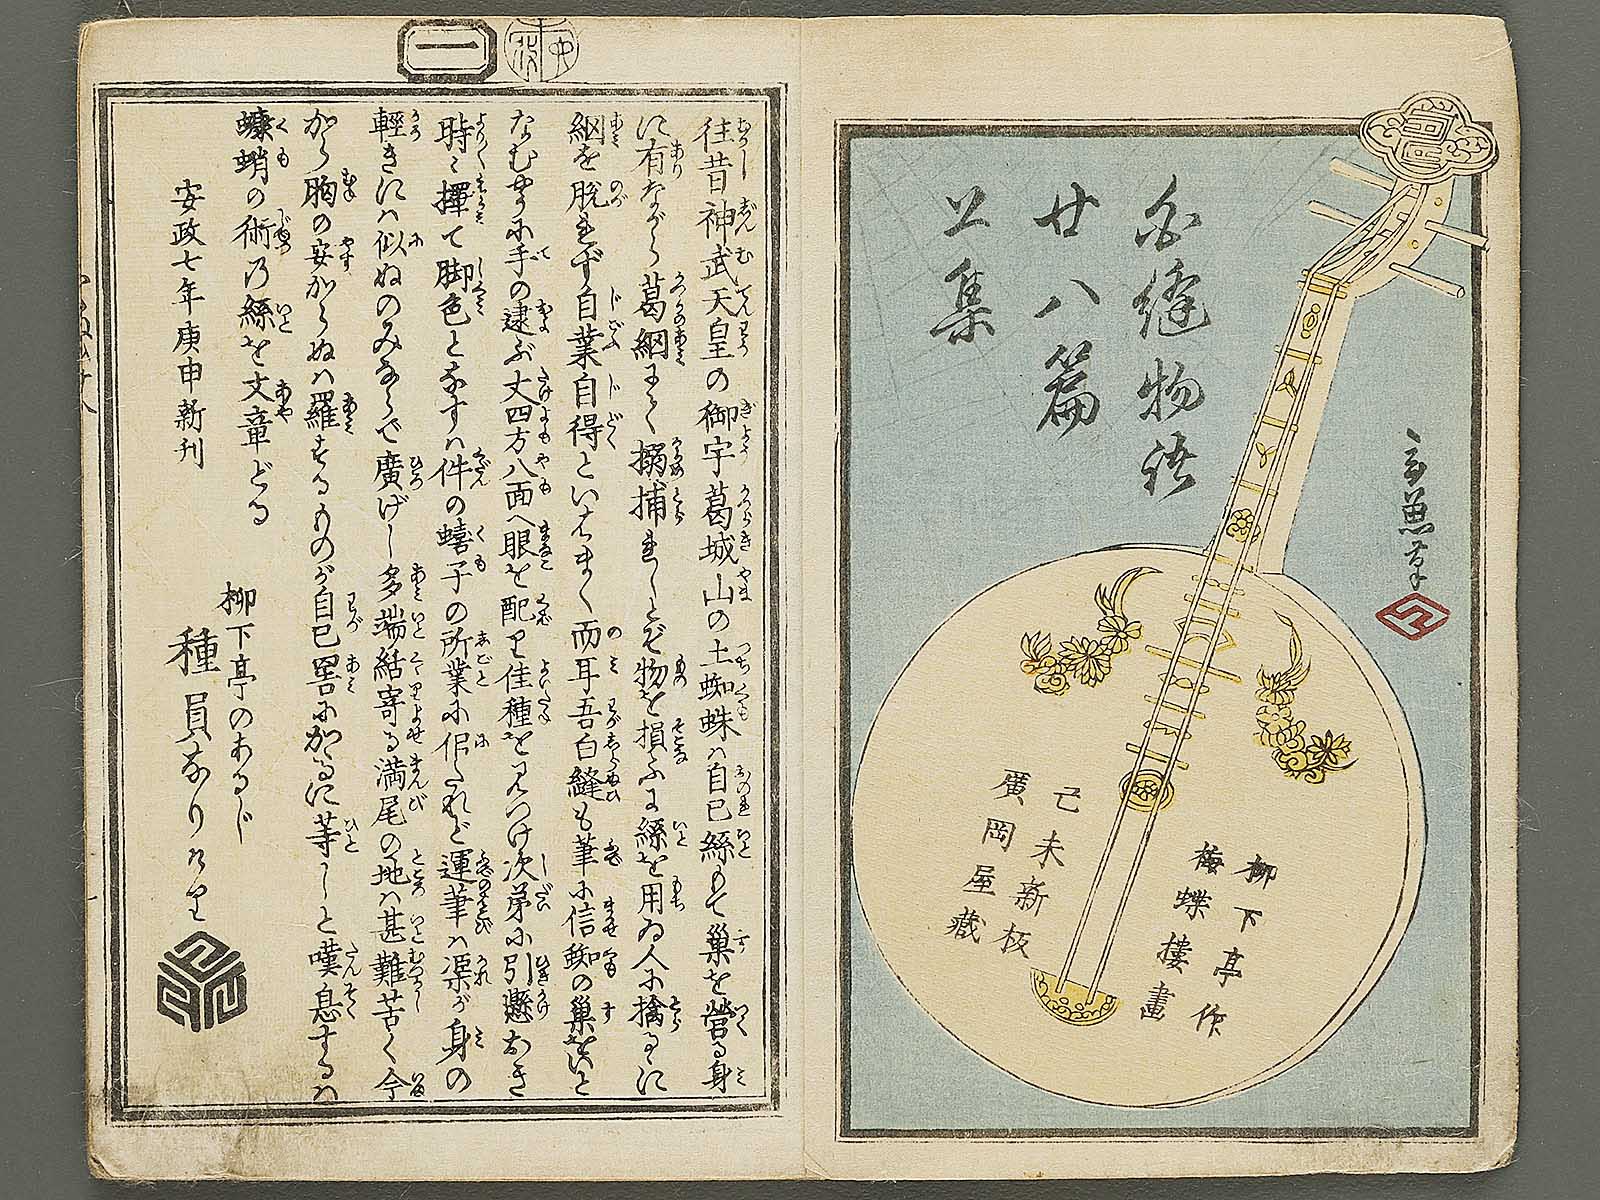 白縫物語
廿八篇
上集
玄魚筆
柳下亭作
梅蝶樓畫
己未新板
廣岡屋藏
一
往昔神武天皇の御宇葛城山の土蜘蛛ハ自己絲もて巣を營る身
に有ながら葛綱にて搦捕れしとぞ物を損ふに絲を用ゐ人に擒るゝに
網を脱れず自業自得といはまく而耳吾白縫も筆に信蜘の巣をいと
なむからに手の逮ぶ丈四方八面へ眼を配り佳種を見つけ次第に引懸おき
時々揮て脚色となすハ件の蟢子の所業に似たれど運筆ハ渠が身の
輕きにハ似ぬのみならで廣げし多端結寄る満尾の地ハ甚難苦く今
から胸の安からぬハ羅するものが自己罟にかゝるに等しと嘆息するハ
蠨蛸の術の絲を文章どる
安政七年庚申新刊
柳下亭のあるじ
種員なりけり